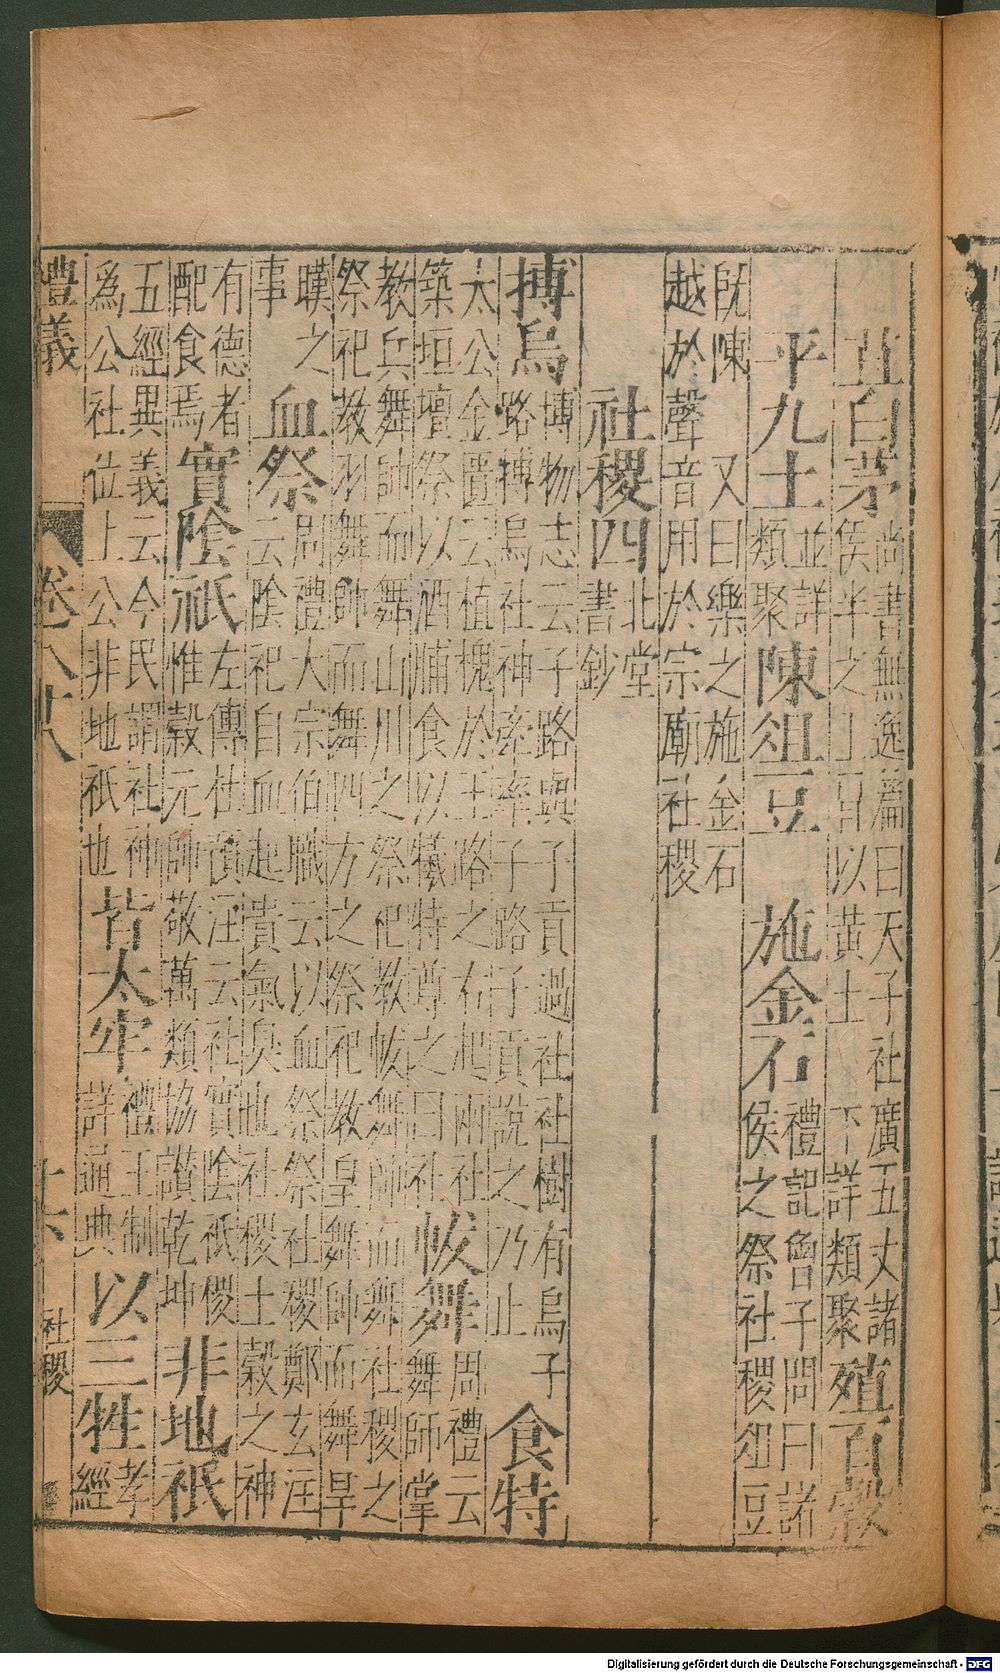 苴白茅尚書無逸篇曰天子社廣五丈諸侯半之上冒以黃土下詳類聚殖百穀
平九土並詳類聚陳俎豆施金石禮記曾子問曰諸侯之祭社稷俎豆
既陳又曰樂之施金石越於聲音用於宗廟社稷
社稷四北堂書鈔
搏烏博物志云子路與子貢過社社樹有烏子路搏烏社神牽率子路子貢說之乃止食特
太公金匱云植槐於王路之右起兩社築垣壇祭以酒脯食以犧特尊之曰社帗舞周禮云舞師掌
教兵舞帥而舞山川之祭祀教帗舞帥而舞社稷之祭祀教羽舞帥而舞四方之祭祀教皇舞帥而舞旱
暵之事血祭周禮大宗伯職云以血祭祭社稷鄭玄注云陰祀自血起貴氣臭也社稷土穀之神
有德者配食焉實陰祇左傳杜預注云社實陰祇稷惟穀元帥敬萬類協讃乾坤非地祇
五經異義云今民謂社神爲公社位上公非地祇也皆太牢禮王制詳通典以三牲孝經
禮義 卷八十八 十六 社稷
Digitalisierung gefördert durch die Deutsche Forschungsgemeinschaft - DFG